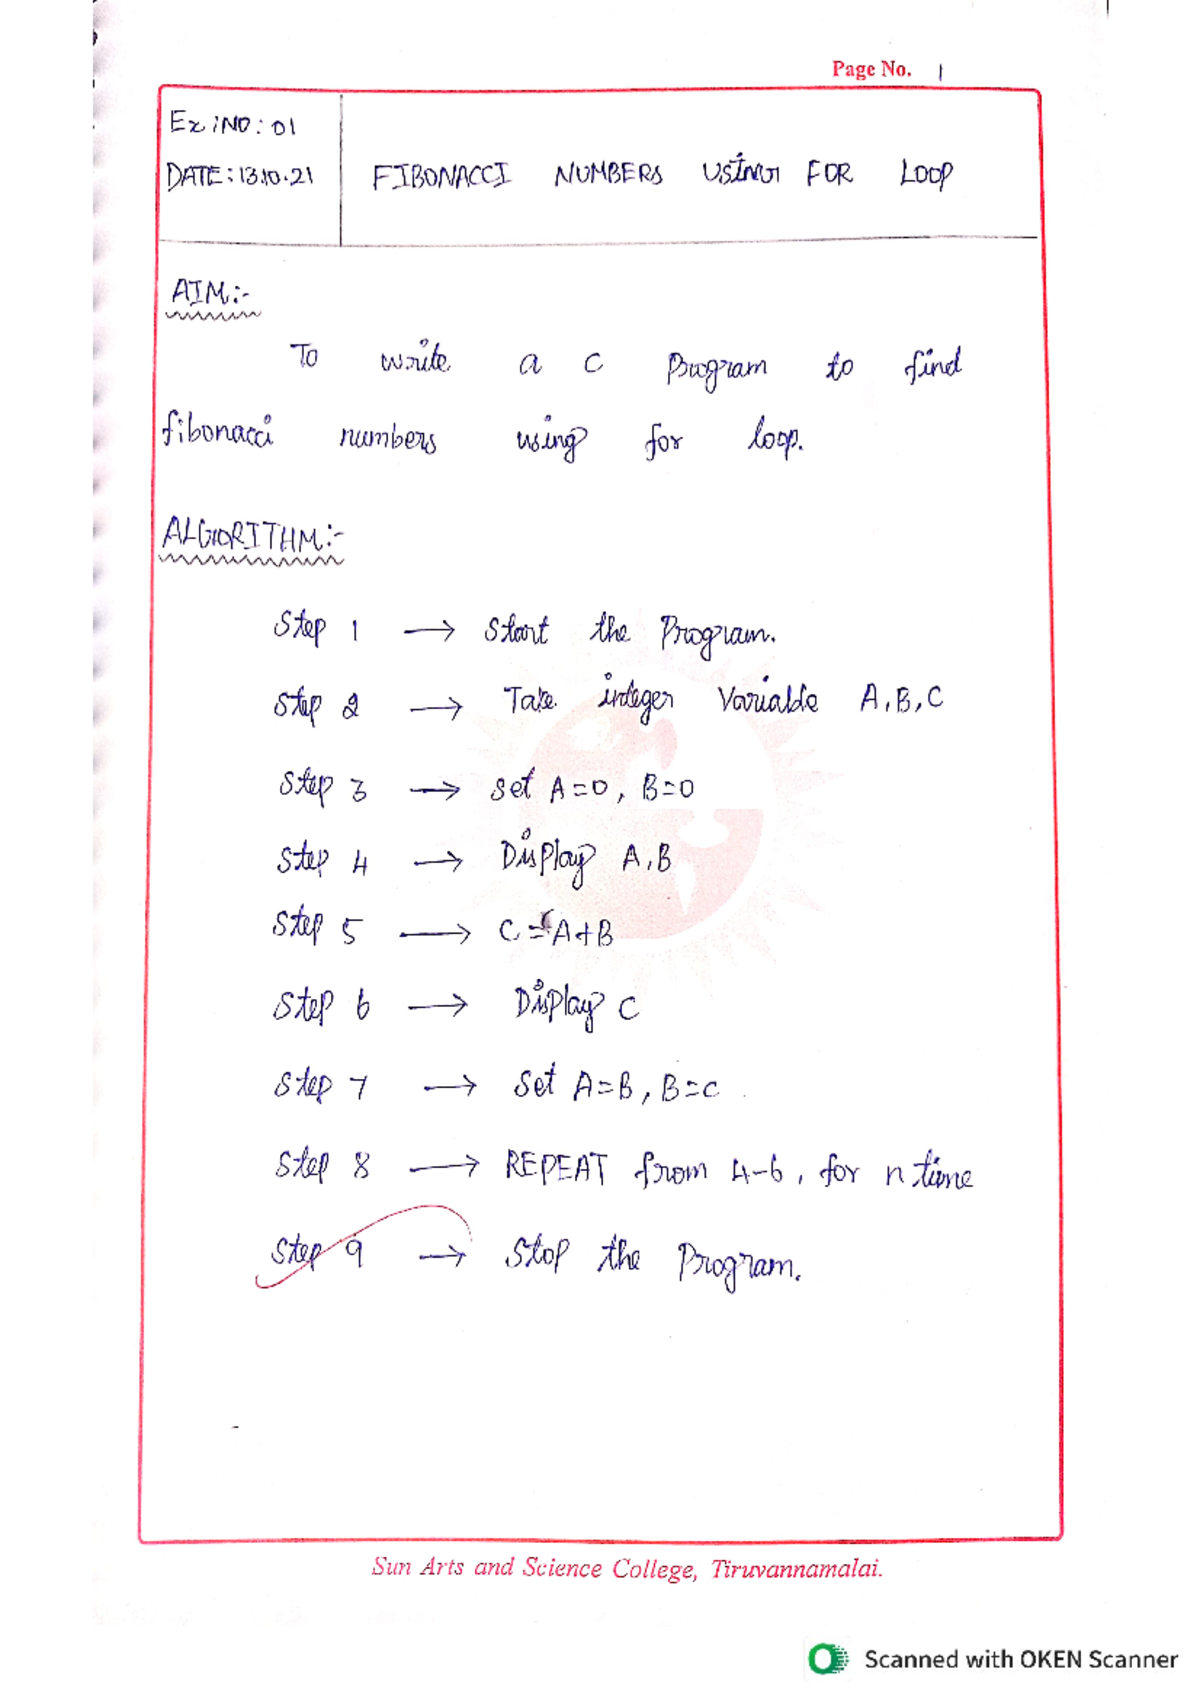 Page No. 1
Ex:NO: 01
DATE: 13.10.21
FIBONACCI NUMBERS USING FOR LOOP
AIM:-
To write a C Program to find
fibonacci numbers using for loop.
ALGORITHM:-
Step 1 → Start the Program.
Step 2 → Take integer Variable A,B,C
Step 3 → Set A=0, B=0
Step 4 → Display A,B
Step 5 → C=A+B
Step 6 → Display C
Step 7 → Set A=B, B=C
Step 8 → REPEAT from 4-6, for n time
Step 9 → Stop the Program.
Sun Arts and Science College, Tiruvannamalai.
Scanned with OKEN Scanner